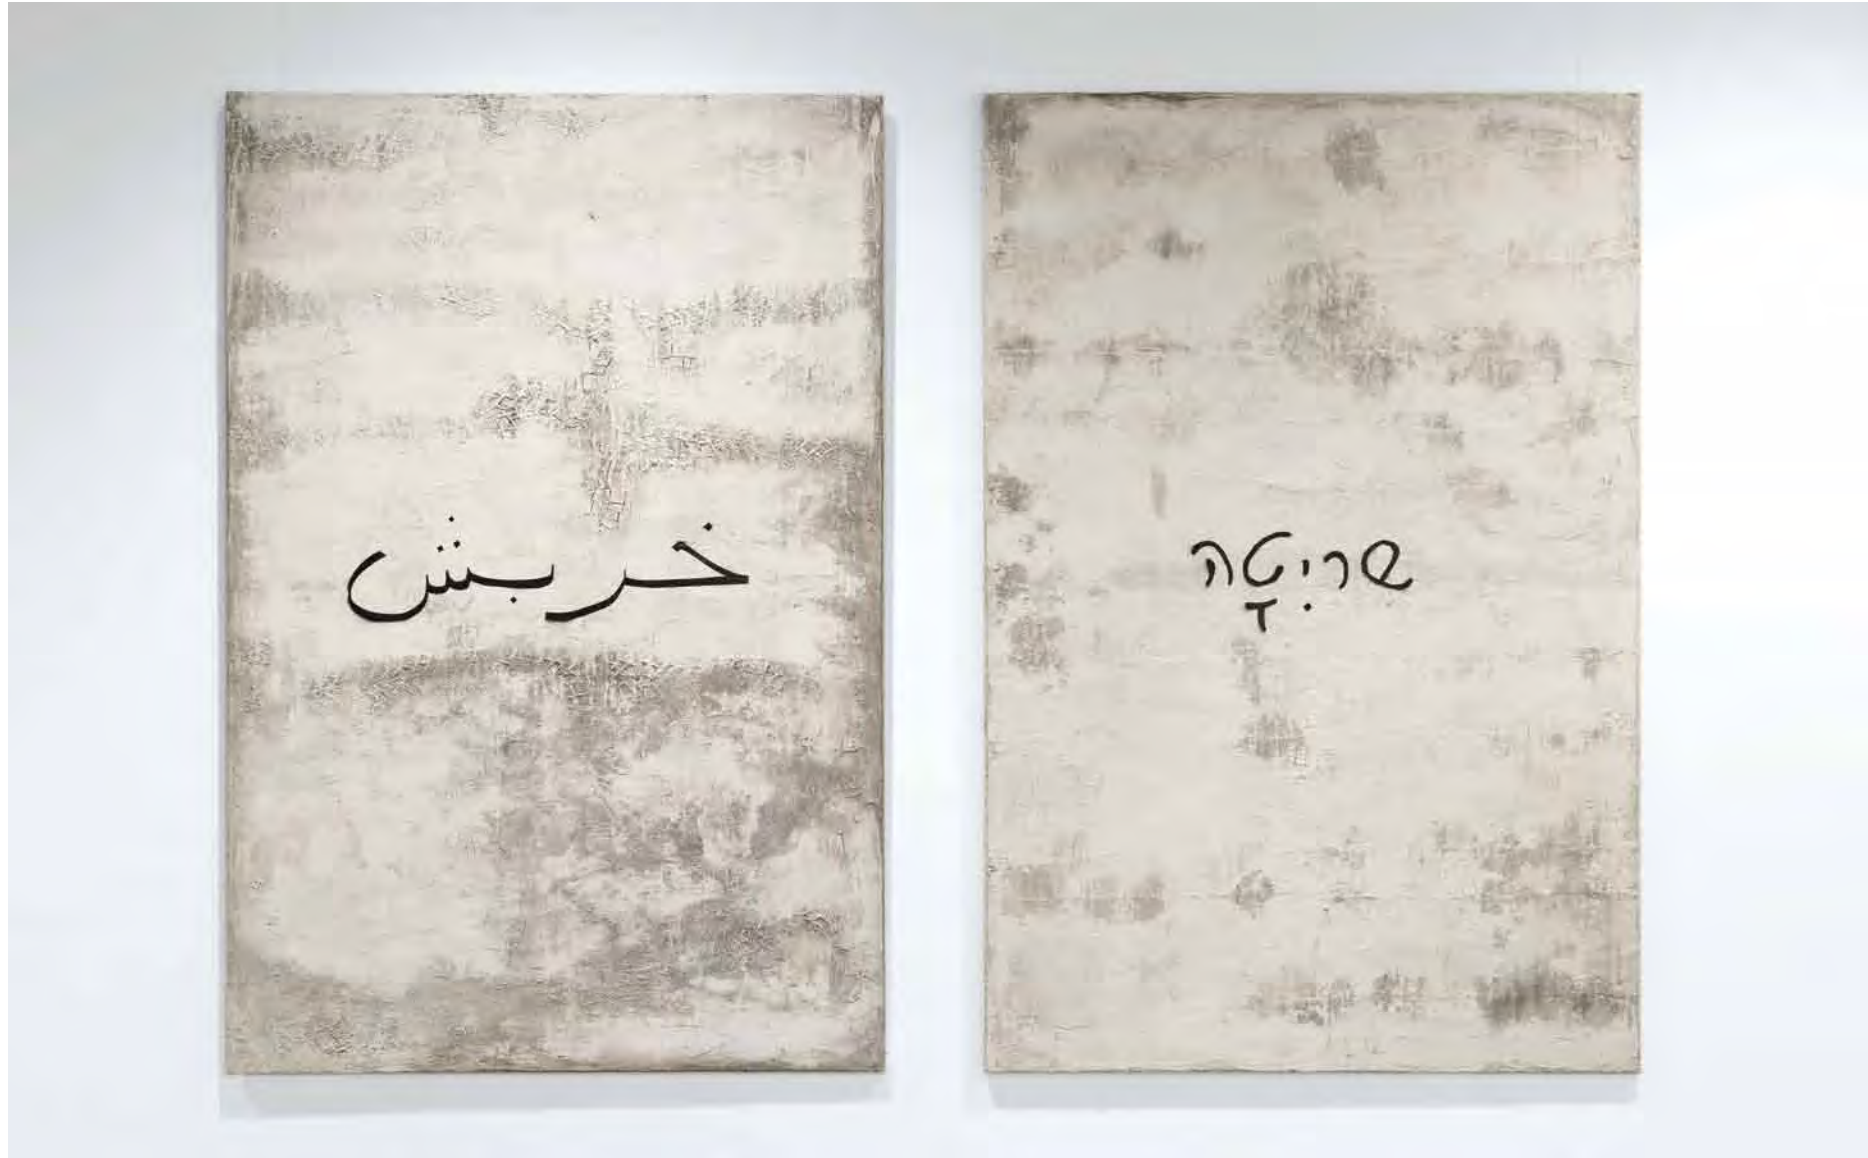 خربش
שריִטָה